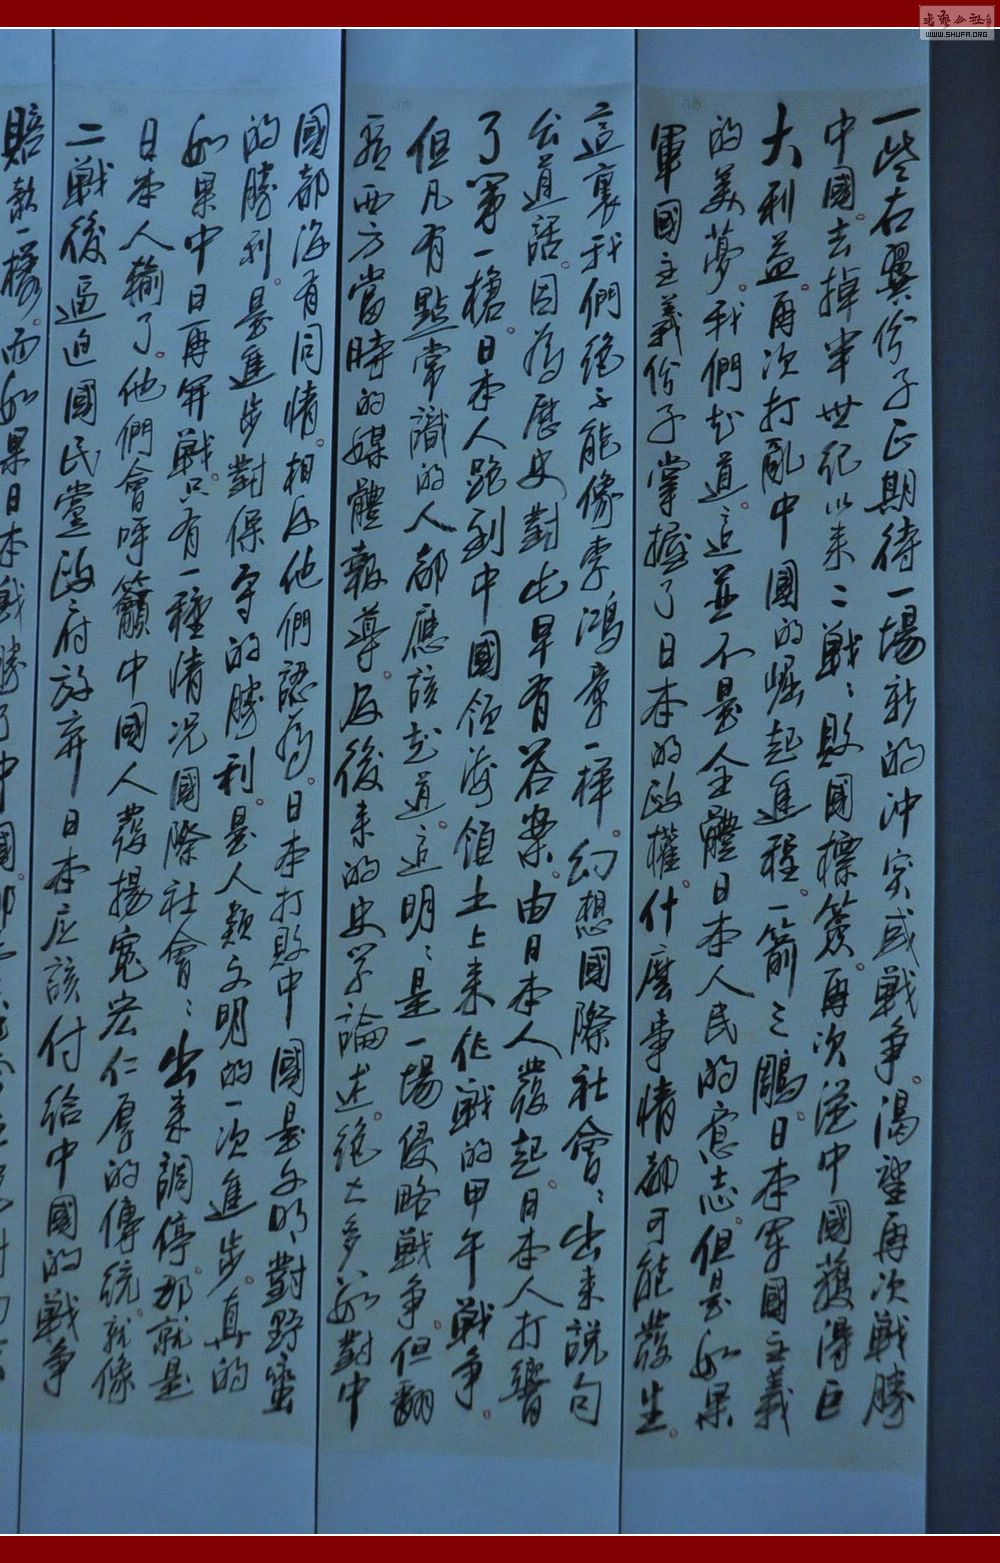 一些右翼份子正期待一場新的沖突或戰爭。渴望再次戰勝
中國。去掉半世紀以来二戰戰敗國標簽。再次從中國獲得巨
大利益。再次打亂中國的崛起進程。一箭三鵰。日本軍國主義
的美夢。我們知道。這並不是全體日本人民的意志。但是如果
軍國主義份子掌握了日本的政權。什麼事情都可能發生。
這裏我們絕不能像李鴻章一樣。幻想國際社會會出来說句
公道話。因為歷史對此早有答案。由日本人發起。日本人打響
了第一槍。日本人跑到中國領海領土上来作戰的甲午戰爭。
但凡有點常識的人都應該知道。這明明是一場侵略戰争。但翻
看西方當時的媒體報導。及後来的史学論述。絕大多數對中
國都沒有同情。相反他們認為。日本打敗中國是文明對野蠻
的勝利。是進步對保守的勝利。是人類文明的一次進步。真的
如果中日再開戰。只有一種情況國際社會會出来調停。那就是
日本人輸了。他們會呼籲中國人發揚寬宏仁厚的傳統。就像
二戰後逼迫國民黨政府放弃日本应該付给中國的戰争
賠款一樣。而如果日本戰勝了中國
書藝公社
WWW.SHUFA.ORG